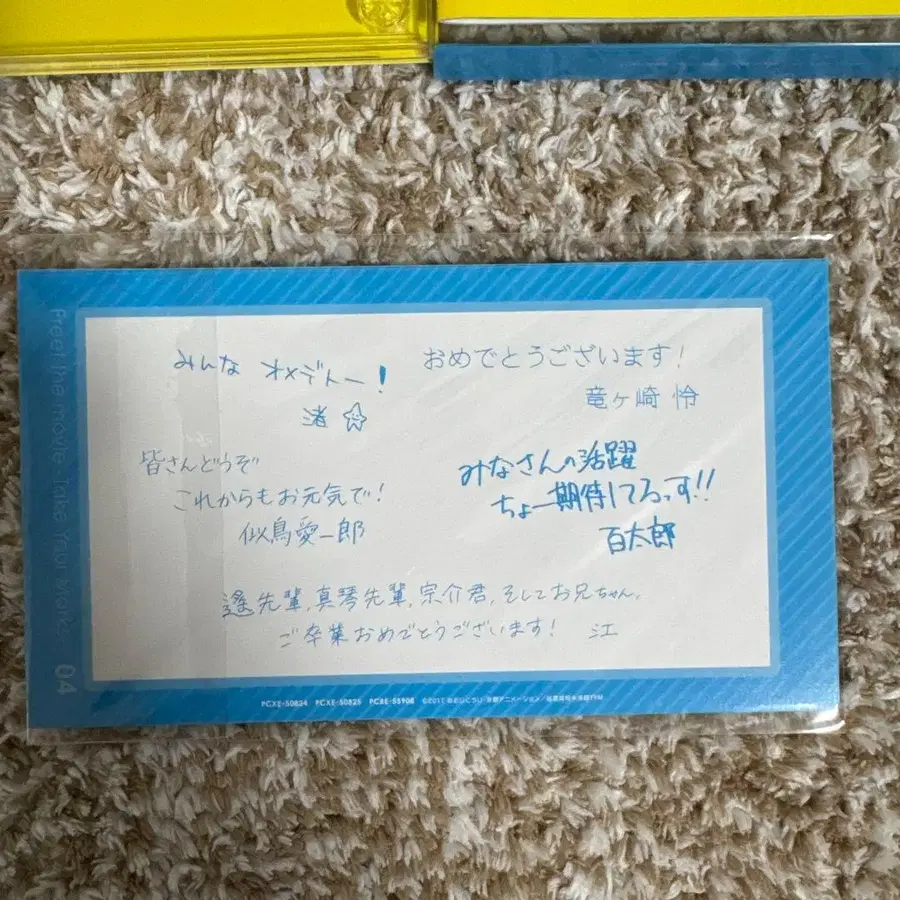 みんな オメデトー!
渚
おめでとうございます!
竜ヶ崎 怜
皆さんどうぞ
これからもお元気で!
似鳥愛一郎
みなさんの活躍
ちょー期待してるっす!!
百太郎
遙先輩,真琴先輩,宗介君,そしてお兄ちゃん,
ご卒業おめでとうございます! 江
Free! the movie -Take Your Marks-
04
PCXE-50824 PCXE-50825 PCBE-55908 ©2017 おおじこうじ・京都アニメーション/岩鳶高校水泳部TYM